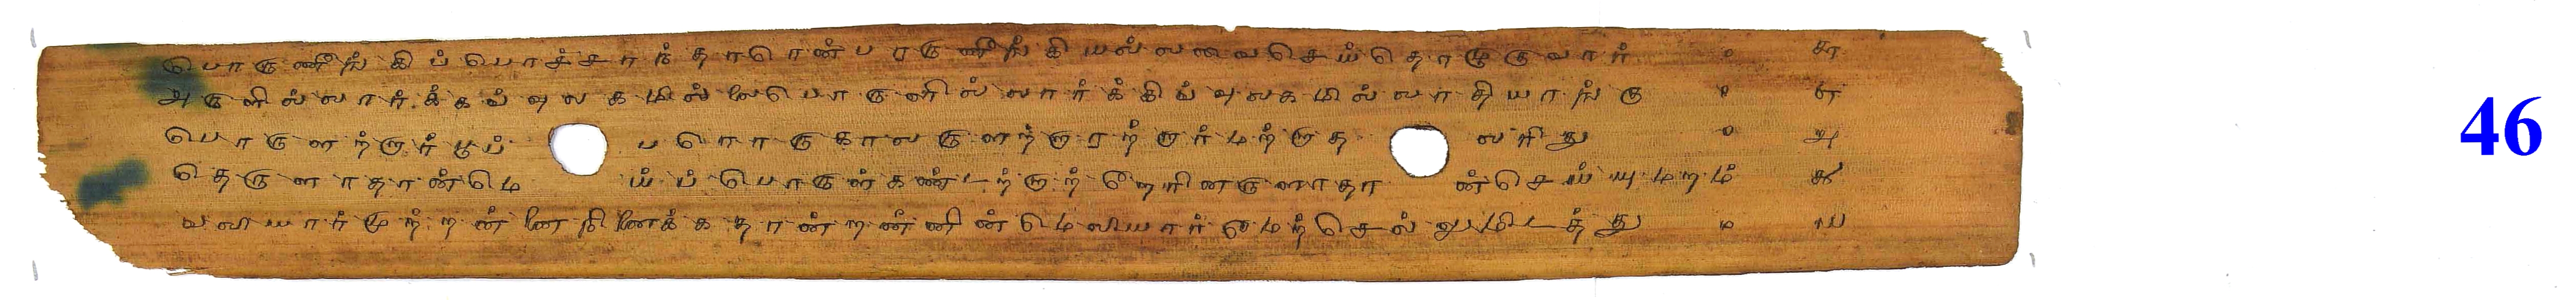 பொருணீங்கிப் பொச்சாந்தாரென்பர ருணீங்கி யல்லவை செய்தொழுகுவார் ௦ ௬
அருளில்லார்க்கவ்வுலகமில்லை பொருளில்லார்க்கிவ்வுலகமில்லாதியாங்கு ௦ ௭
பொருளற்றார் பூப்பரொருகாலருளற்றாரற்றார் மற்றாதலரிது ௦ ௮
தெருளாதான் மெய்ப்பொருள் கண்டற்றாற் றேரினருளாதான் செய்யுமறம் ௯
வலியார் முற்றன்னை நினைக்க தான்றன்னின் மெலியார் மேற்செல்லுமிடத்து ௦ ௰
46